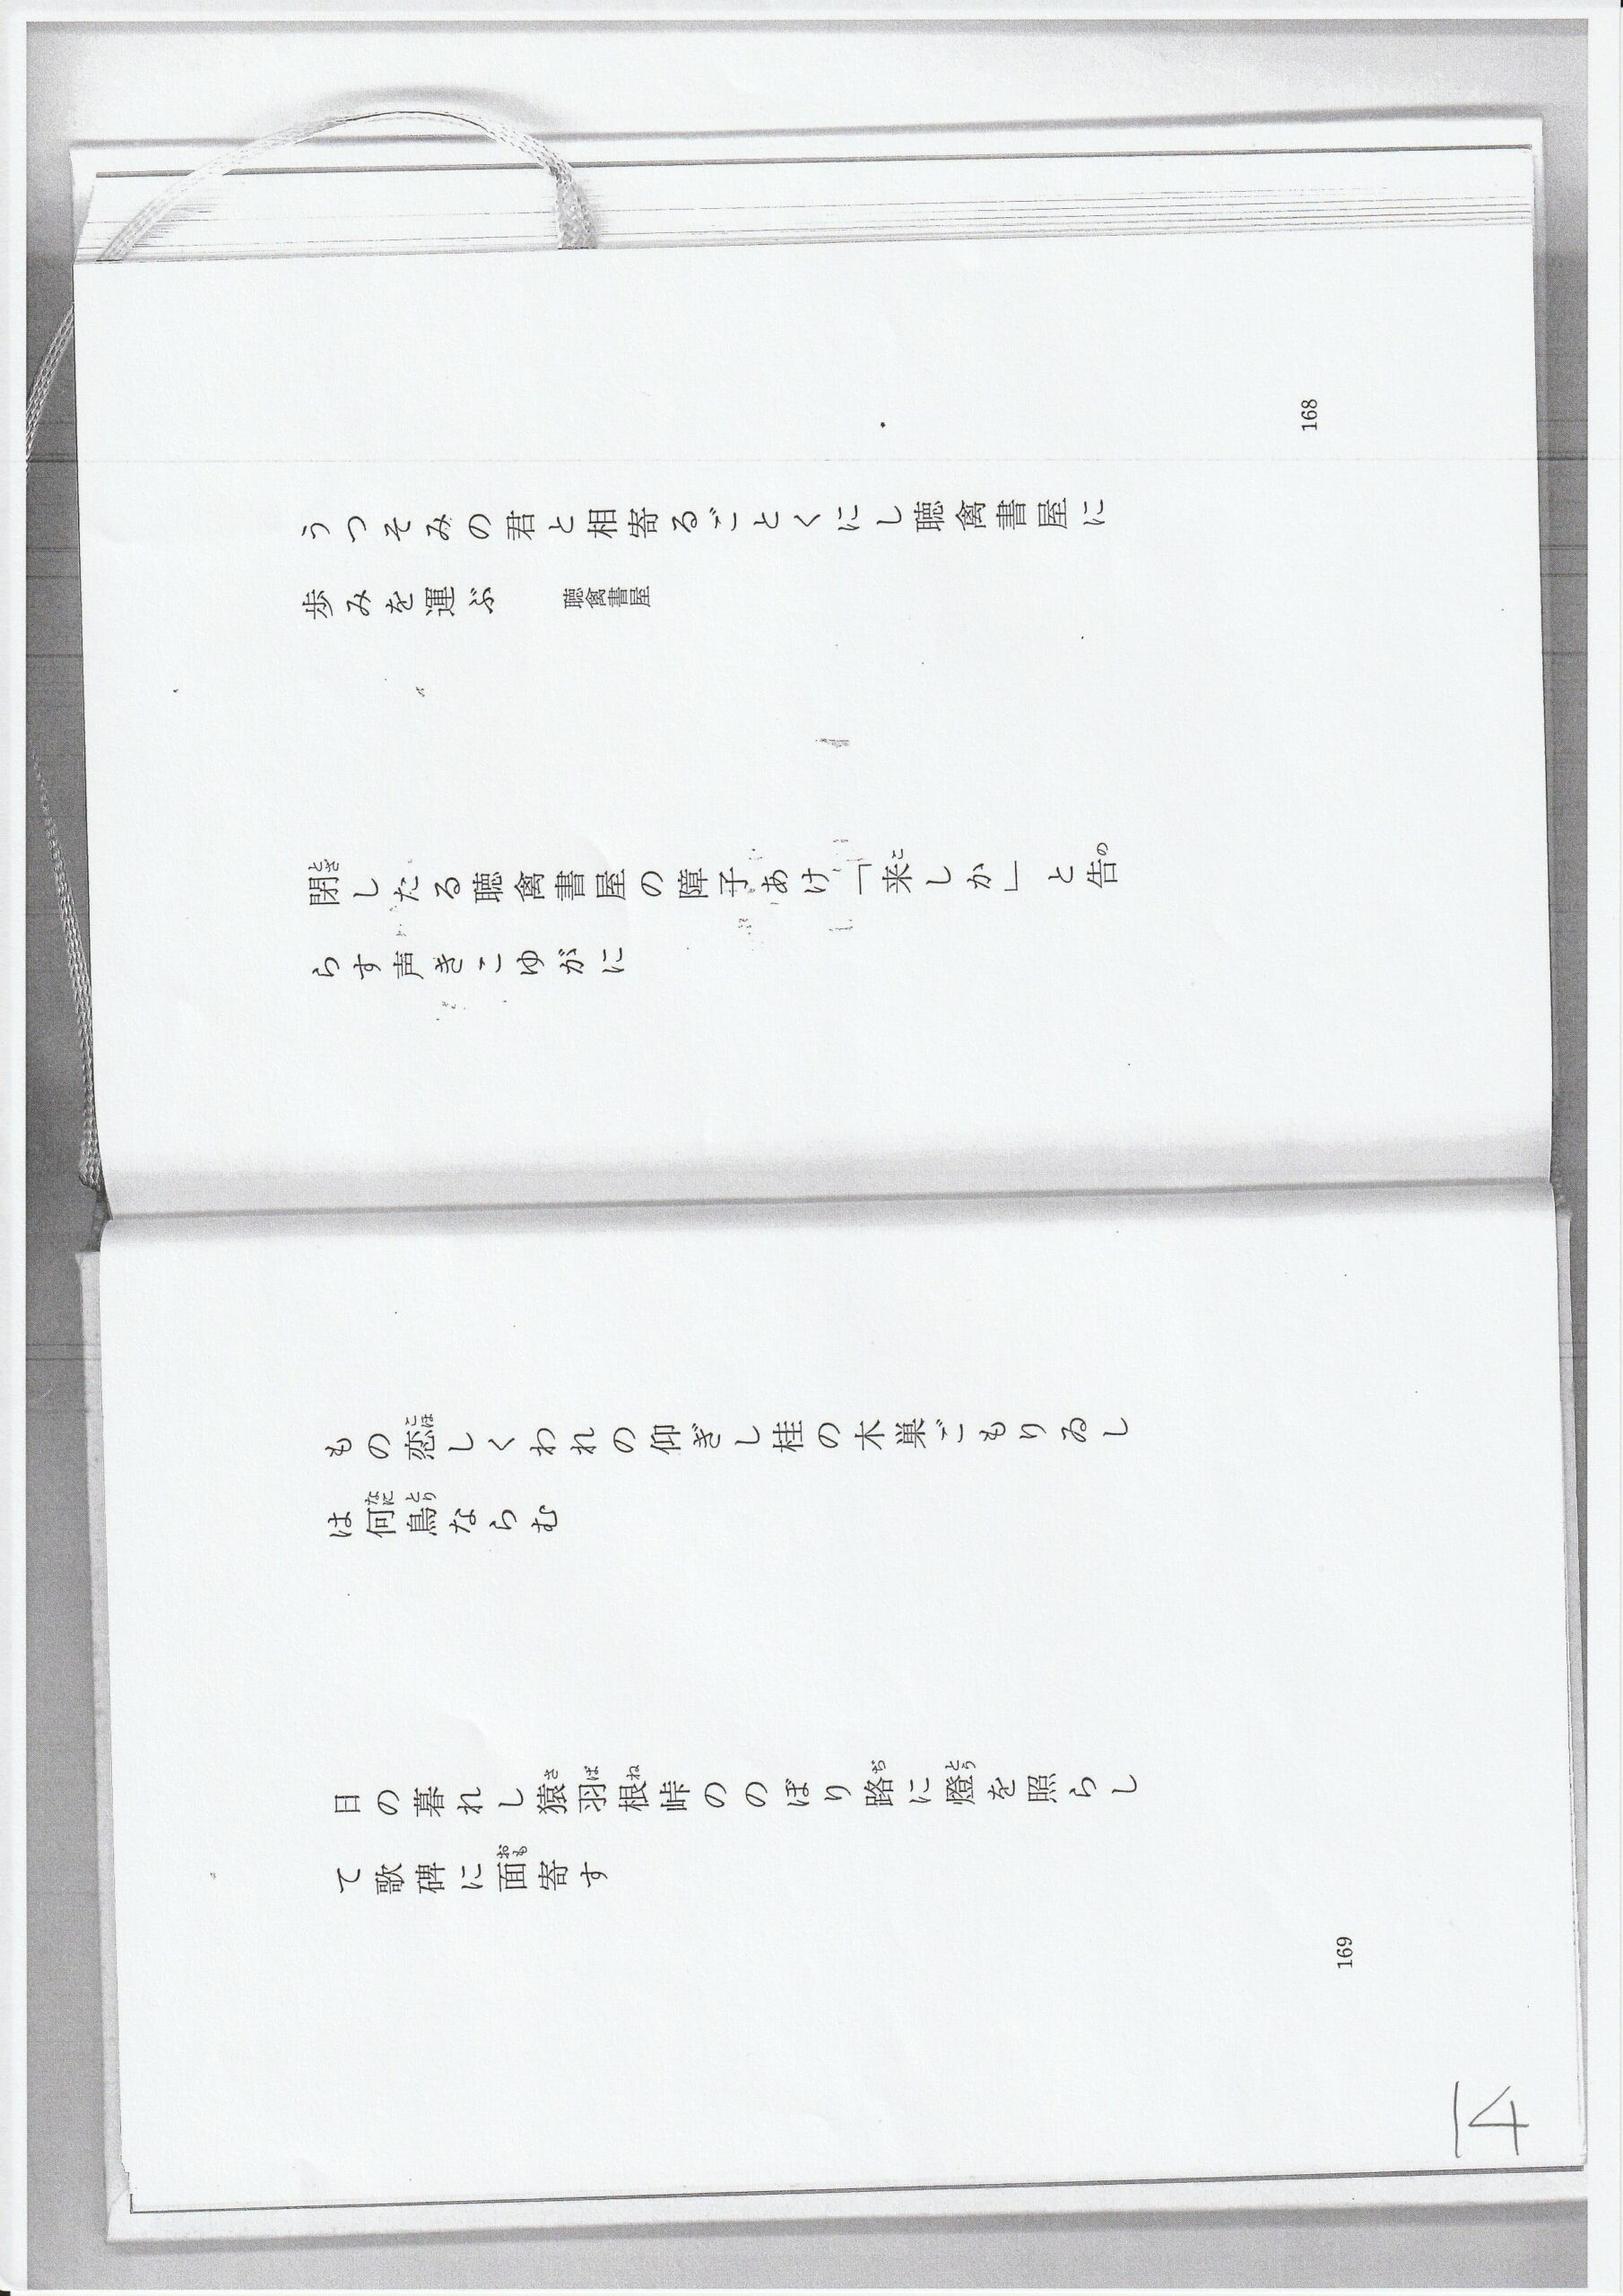 うつそみの君と相寄るごとくにし聴禽書屋に
歩みを運ぶ　聴禽書屋
閉(とざ)したる聴禽書屋の障子あけ「来(こ)しか」と告(の)
らす声きこゆがに
168
もの恋(こほ)しくわれの仰ぎし桂の木巣ごもりゐし
は何(なに)鳥(とり)ならむ
日の暮れし猿(さ)羽(ば)根(ね)峠ののぼり路(ぢ)に燈(とう)を照らし
て歌碑に面(おも)寄す
169
14